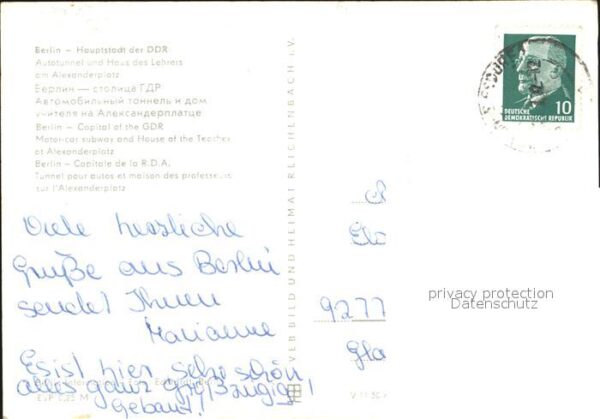 Berlin – Hauptstadt der DDR
Autotunnel und Haus des Lehrers
am Alexanderplatz
Берлин — столица ГДР
Автомобильный тоннель и дом
учителя на Александерплатце
Berlin – Capital of the GDR
Motor-car subway and House of the Teacher
at Alexanderplatz
Berlin – Capitale de la R.D.A.
Tunnel pour autos et maison des professeurs
sur l'Alexanderplatz
Viele herzliche
Grüße aus Berlin
sendet Ihnen
Marianne
Es ist hier sehr schön
alles ganz großzügig!
Gebaut!
EVP 0,25 M
VEB BILD UND HEIMAT REICHENBACH i. V.
10
DEUTSCHE
DEMOKRATISCHE REPUBLIK
9277
Gla
privacy protection
Datenschutz